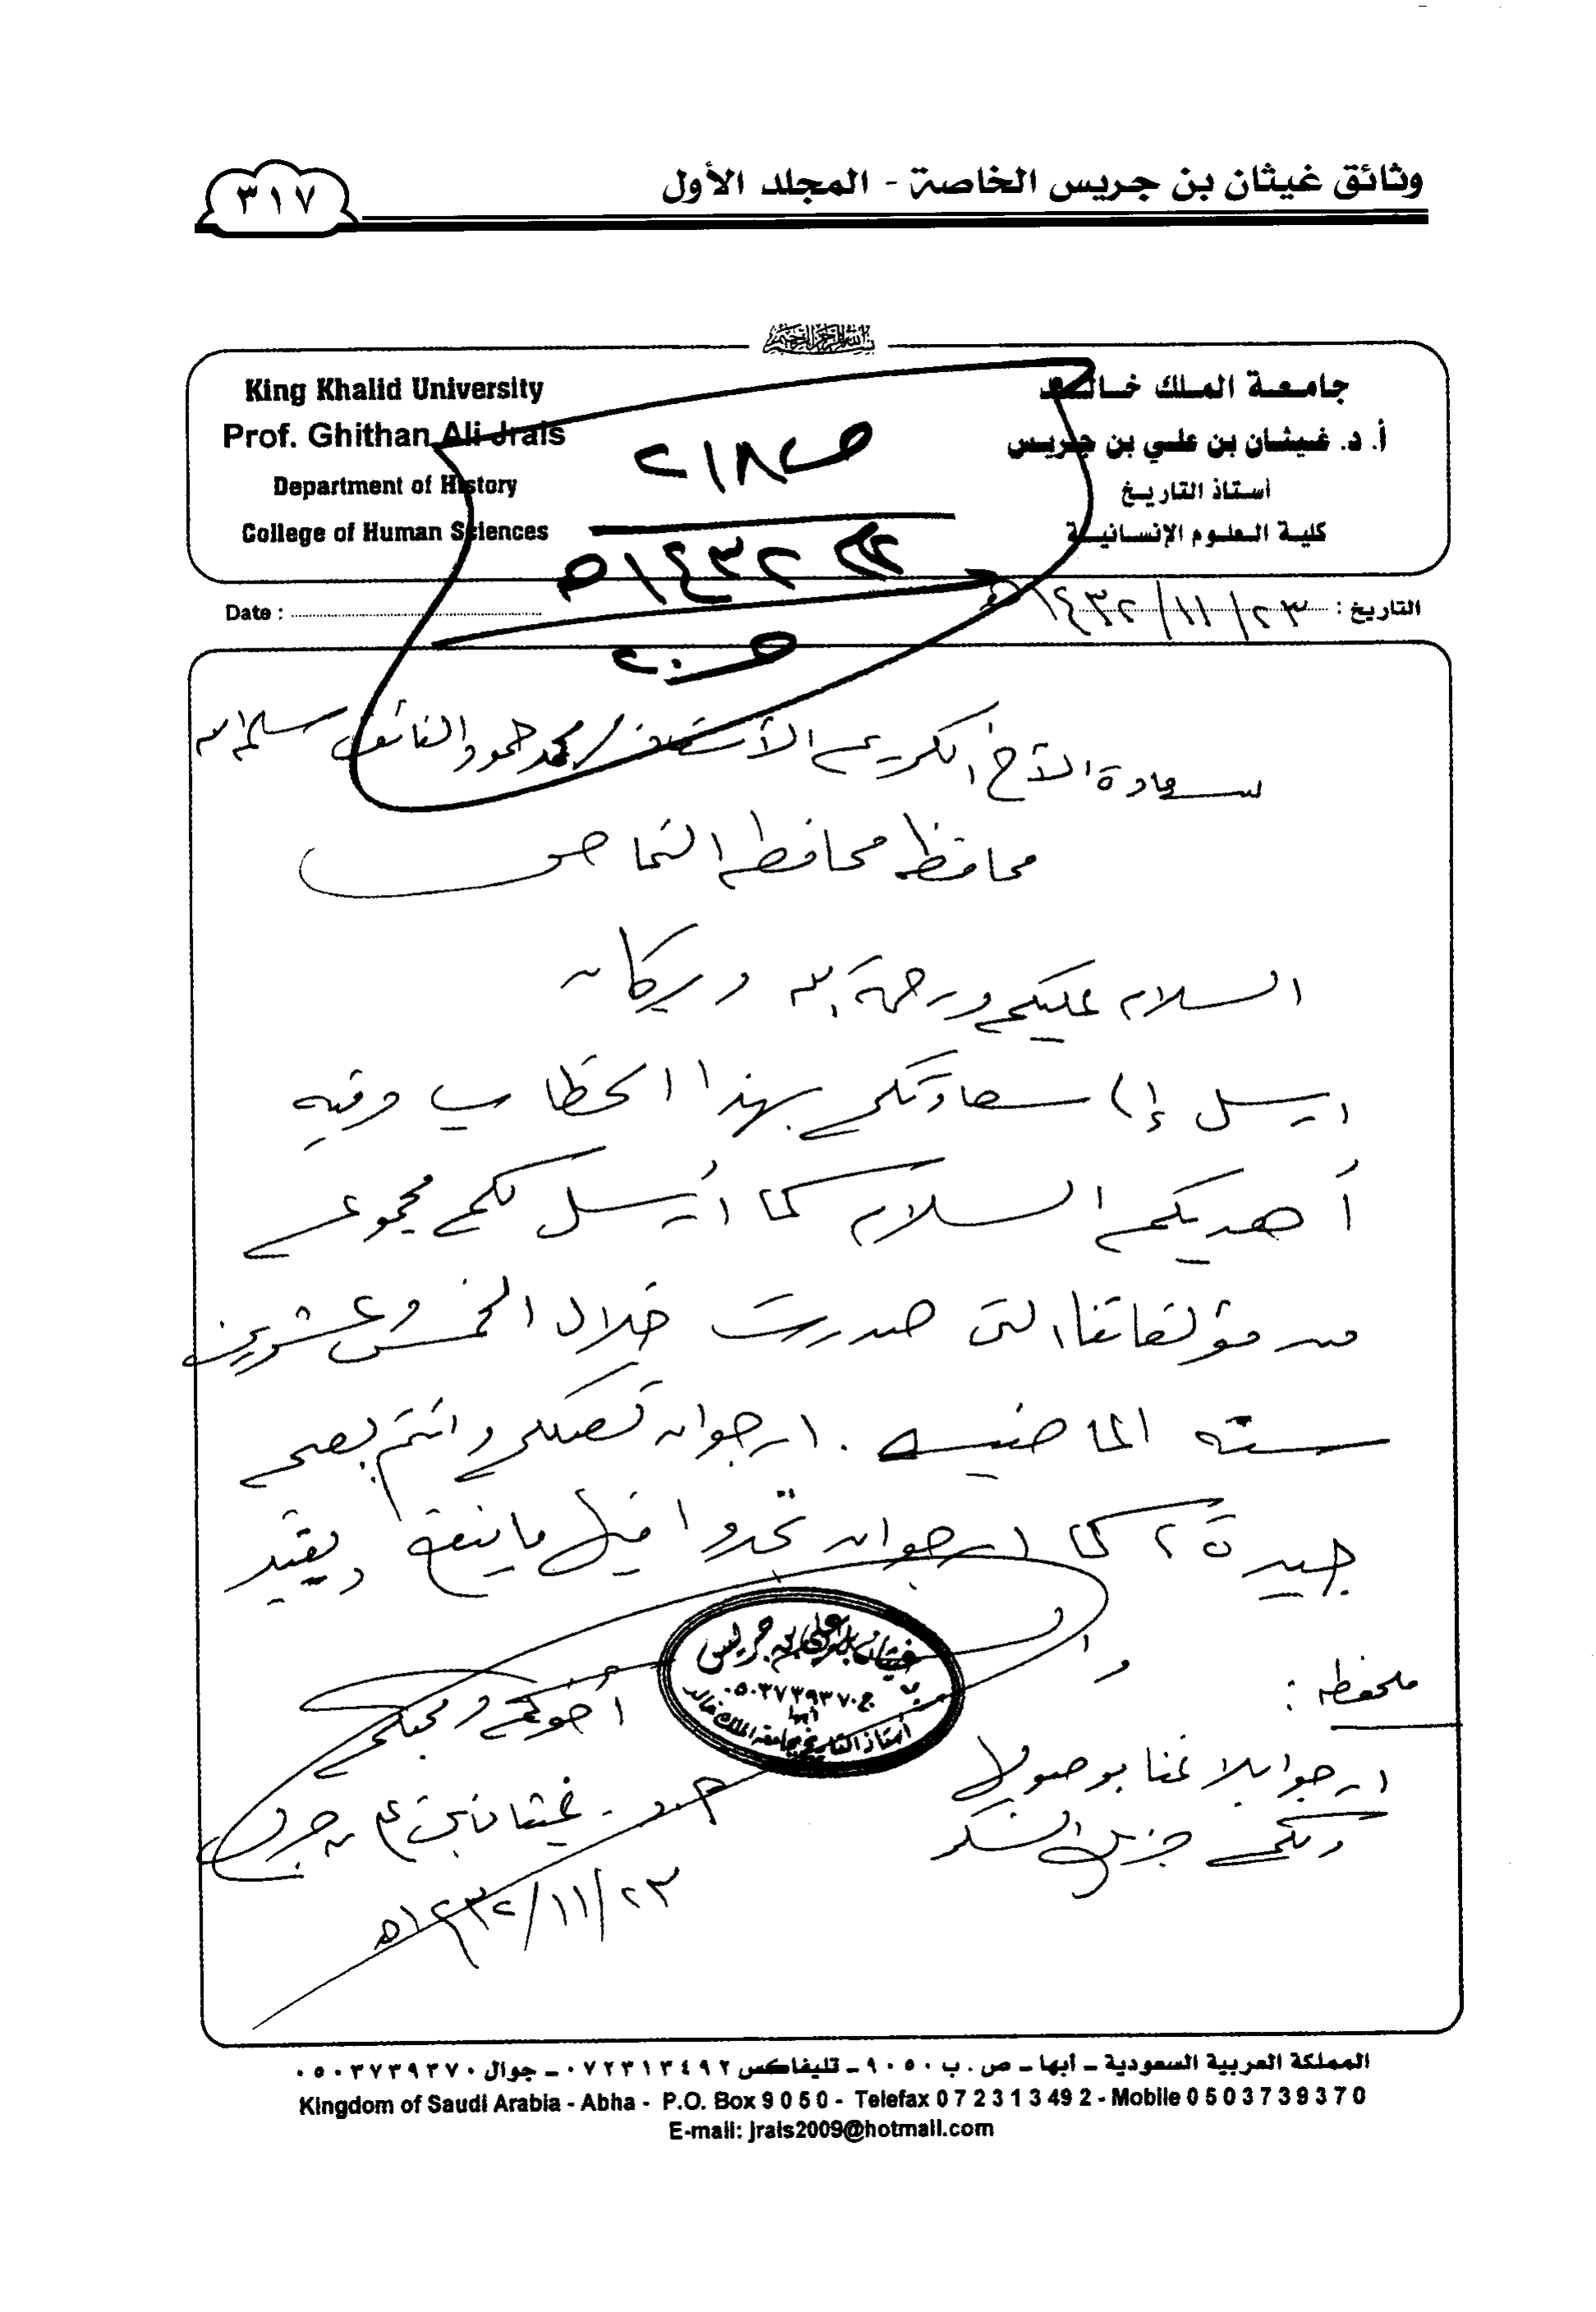 وثائق غيثان بن جريس الخاصة - المجلد الأول
٣١٧
جامعة الملك خالد
أ. د. غيثان بن علي بن جريس
أستاذ التاريخ
كلية العلوم الإنسانية
King Khalid University
Prof. Ghithan Ali Jrais
Department of History
College of Human Sciences
ص ٢١٨
١٤٣٢هـ
التاريخ : ٢٣/١١/١٤٣٢هـ
Date :
سعادة الأخ الكريم الأستاذ/ محمد حمود النائف سلمه الله
محافظ محافظة النماص
السلام عليكم ورحمة الله وبركاته
ارسل إلى سعادتكم بهذا الخطاب وفيه
أهديكم السلام كما أرسل لكم مجموعة
من مؤلفاتنا التي صدرت خلال الخمس وعشرين
سنة الماضية . ارجو ان تصلكم وانتم بصحة
جيدة ، كما ارجو ان تجدوا فيها ما ينفع ويفيد
والسلام
أخوكم ومحبكم
غيثان بن علي بن جريس
٢٣/١١/١٤٣٢هـ
ملحظة :
ارجو ابلاغنا بوصولها
ولكم جزيل الشكر
غيثان بن علي بن جريس
ج ٠٥٠٣٧٣٩٣٧٠
أبها
أستاذ التاريخ بجامعة الملك خالد
المملكة العربية السعودية – أبها – ص . ب ٩٠٥٠ – تليفاكس ٠٧٢٣١٣٤٩٢ – جوال ٠٥٠٣٧٣٩٣٧٠
Kingdom of Saudi Arabia - Abha - P.O. Box 9 0 5 0 - Telefax 0 7 2 3 1 3 49 2 - Mobile 0 5 0 3 7 3 9 3 7 0
E-mail: jrais2009@hotmail.com